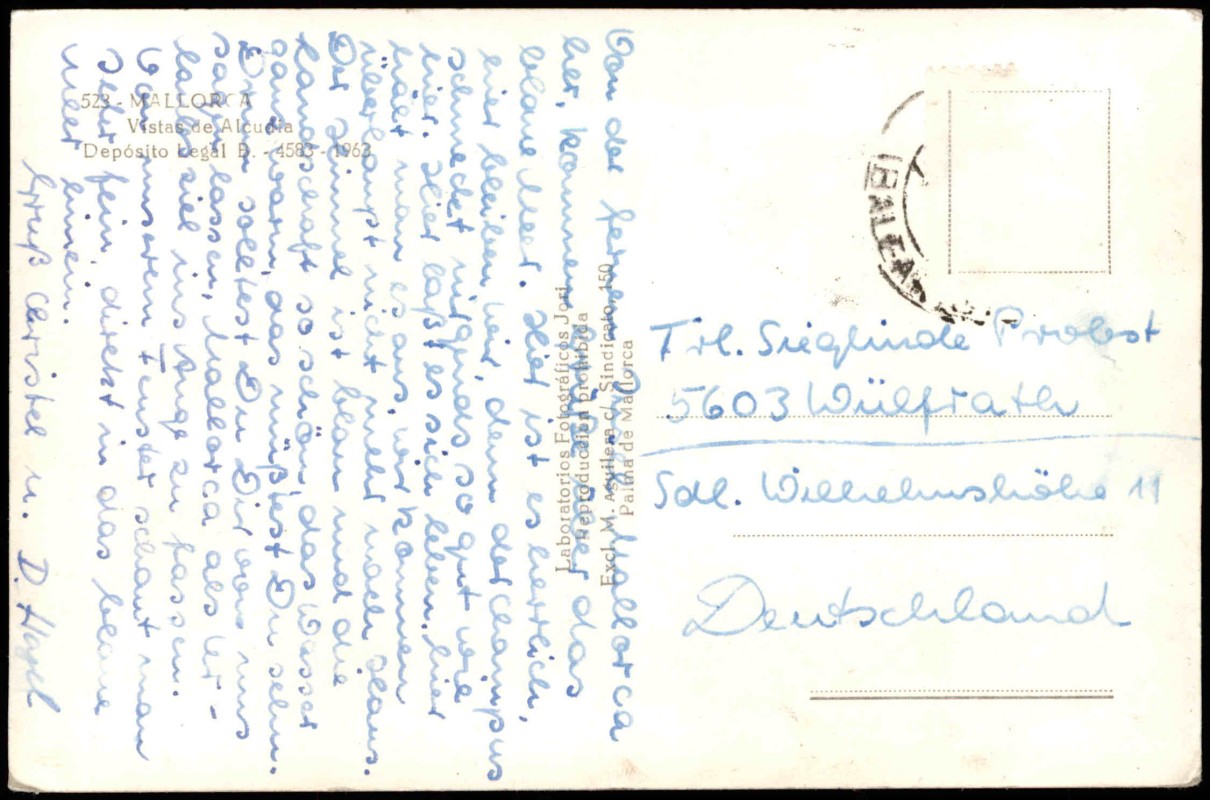 523 - MALLORCA
Vistas de Alcudia
Depósito Legal B. - 4583 - 1963
Von der fernen Insel Mallorca
her, kommen Grüße über das
blaue Meer. Hier ist es herrlich,
hier bleiben wir, denn der Champus
schmeckt nirgends so gut wie
hier. Hier läßt es sich leben, hier
hält man es aus, wir können
überhaupt nicht mehr nach Haus.
Der Himmel ist blau und die
Landschaft so schön, das Wasser
ganz warm, das müßtest Du sehn.
Drum solltest Du Dir von uns
sagen lassen, Mallorca als Ur-
laubsziel ins Auge zu fassen.
Von unserem Fenster schaut man
sehr fein, direkt in das blaue
Meer hinein.
Gruß Christel u. D.
Laboratorios Fotográficos Jorj
Reproducción prohibida
Excl. M. Aguilera c/ Sindicato, 150
Palma de Mallorca
BALEA
Frl. Sieglinde Probst
5603 Wülfrath
Sdl. Wilhelmshöhe 11
Deutschland